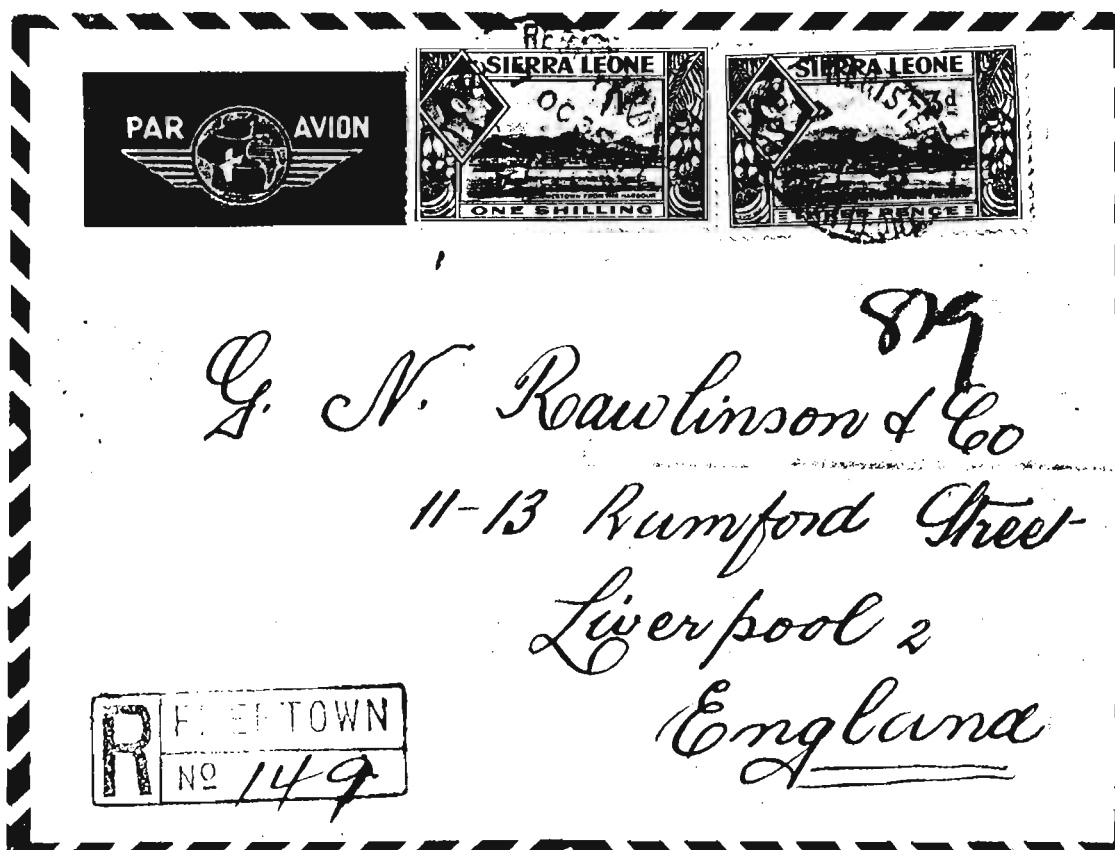 PAR AVION
SIERRA LEONE
ONE SHILLING
SIERRA LEONE
3d
THREE PENCE
829
G. N. Rawlinson & Co
11-13 Rumford Street
Liverpool 2
England
R FREETOWN
No 149